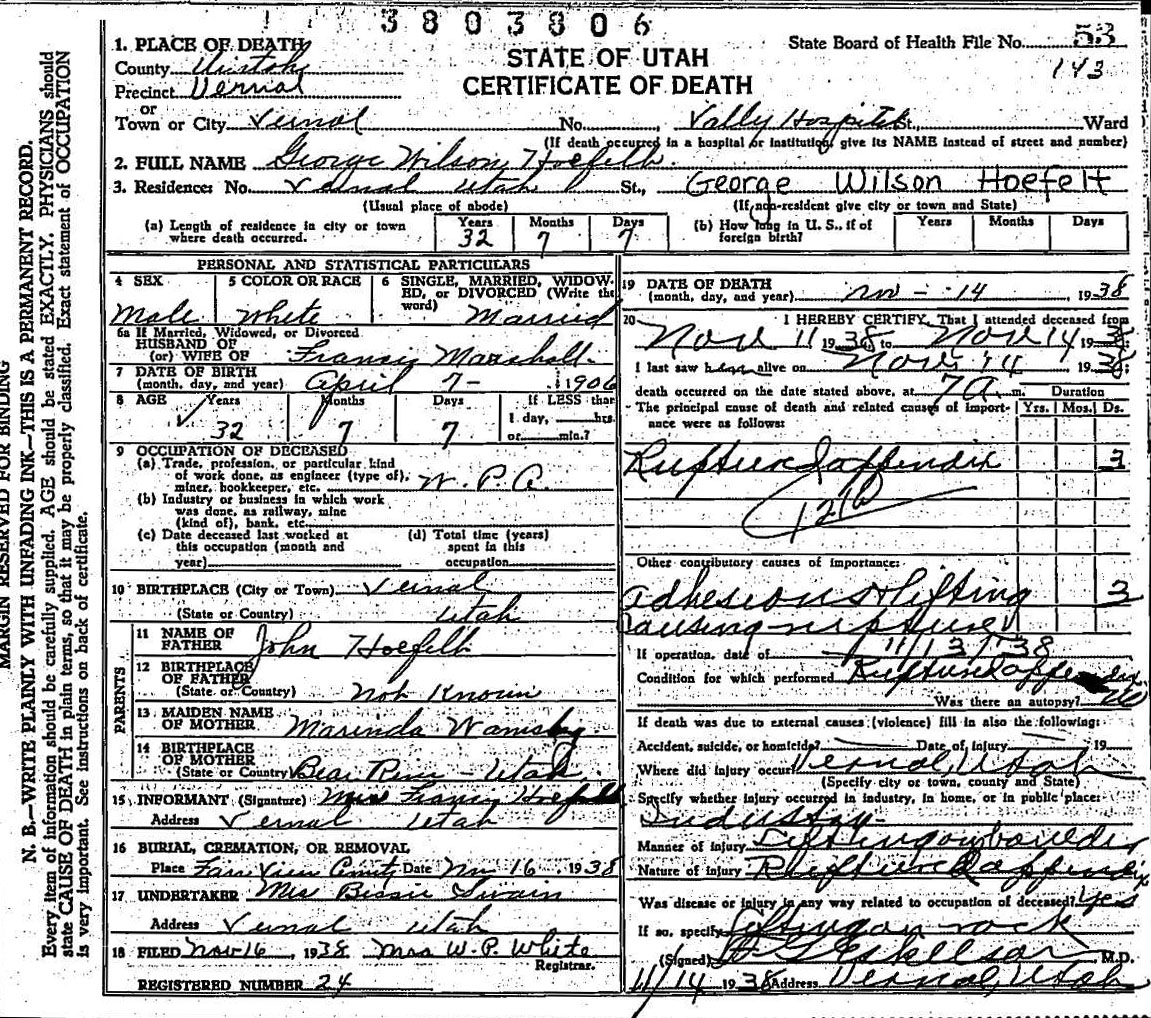 3803806
1. PLACE OF DEATH
STATE OF UTAH
CERTIFICATE OF DEATH
State Board of Health File No. 53
143
County Uintah
Precinct Vernal
or
Town or City Vernal No. , Vally Hospital St., Ward
(If death occurred in a hospital or institution, give its NAME instead of street and number)
2. FULL NAME George Wilson Hoefelt
3. Residences No. Vernal Utah St., George Wilson Hoefelt
(Usual place of abode) (If non-resident give city or town and State)
(a) Length of residence in city or town where death occurred. Years 32 Months 7 Days 7
(b) How long in U. S., if of foreign birth? Years Months Days
PERSONAL AND STATISTICAL PARTICULARS
4 SEX Male
5 COLOR OR RACE White
6 SINGLE, MARRIED, WIDOWED, or DIVORCED (Write the word) Married
6a If Married, Widowed, or Divorced
HUSBAND OF
(or) WIFE OF Francis Marshall
7 DATE OF BIRTH
(month, day, and year) April 7- 1906
8 AGE Years 32 Months 7 Days 7 If LESS than 1 day, hrs. or min.?
9 OCCUPATION OF DECEASED
(a) Trade, profession, or particular kind of work done, as engineer (type of), miner, bookkeeper, etc. W. P. A.
(b) Industry or business in which work was done, as railway, mine (kind of), bank, etc.
(c) Date deceased last worked at this occupation (month and year)
(d) Total time (years) spent in this occupation
10 BIRTHPLACE (City or Town) Vernal
(State or Country) Utah
PARENTS
11 NAME OF FATHER John Hoefelt
12 BIRTHPLACE OF FATHER
(State or Country) Not Known
13 MAIDEN NAME OF MOTHER Marinda
14 BIRTHPLACE OF MOTHER
(State or Country) Bear River - Utah
15 INFORMANT (Signature) Mrs Francis Hoefelt
Address Vernal Utah
16 BURIAL, CREMATION, OR REMOVAL
Place Date Nov 16 1938
17 UNDERTAKER Mrs Bessie Swain
Address Vernal Utah
18 FILED Nov 16, 1938 Mrs W. P. White
Registrar.
REGISTERED NUMBER 24
19 DATE OF DEATH
(month, day, and year) Nov - 14 1938
20 I HEREBY CERTIFY, That I attended deceased from
Nov 11 1938, to Nov 14 1938;
I last saw him alive on Nov 14 1938;
death occurred on the date stated above, at 7 a. m. Duration
The principal cause of death and related causes of importance were as follows: Yrs. Mos. Ds.
Ruptured appendix 3
Other contributory causes of importance:
Adhesions & lifting 3
causing rupture
If operation, date of 38
Condition for which performed Ruptured appendix
Was there an autopsy? no
If death was due to external causes (violence) fill in also the following:
Accident, suicide, or homicide? Date of injury 19
Where did injury occur? Vernal, Utah
(Specify city or town, county and State)
Specify whether injury occurred in industry, in home, or in public place:
Industry
Manner of injury Lifting on boulder
Nature of injury Ruptured appendix
Was disease or injury in any way related to occupation of deceased? Yes
If so, specify Lifting on rock
(Signed) , M.D.
11/14 1938 Address Vernal, Utah
MARGIN RESERVED FOR BINDING
N. B.—WRITE PLAINLY WITH UNFADING INK—THIS IS A PERMANENT RECORD.
Every item of information should be carefully supplied. AGE should be stated EXACTLY. PHYSICIANS should
state CAUSE OF DEATH in plain terms, so that it may be properly classified. Exact statement of OCCUPATION
is very important. See instructions on back of certificate.